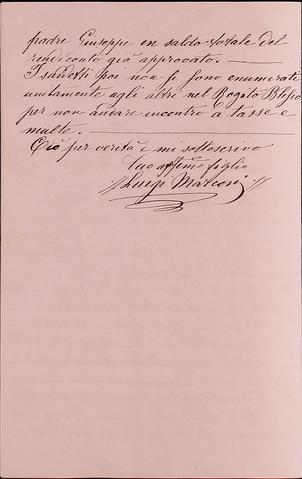 padre Giuseppe in saldo totale del
rendiconto già approvato. —
I sudetti poi non si sono enumerati
unitamente agli altri nel Rogito Blesio
per non andare incontro a tasse e
multe. —
Ciò per verità e mi sottoscrivo
Suo affemo figlio
Luigi Marconi